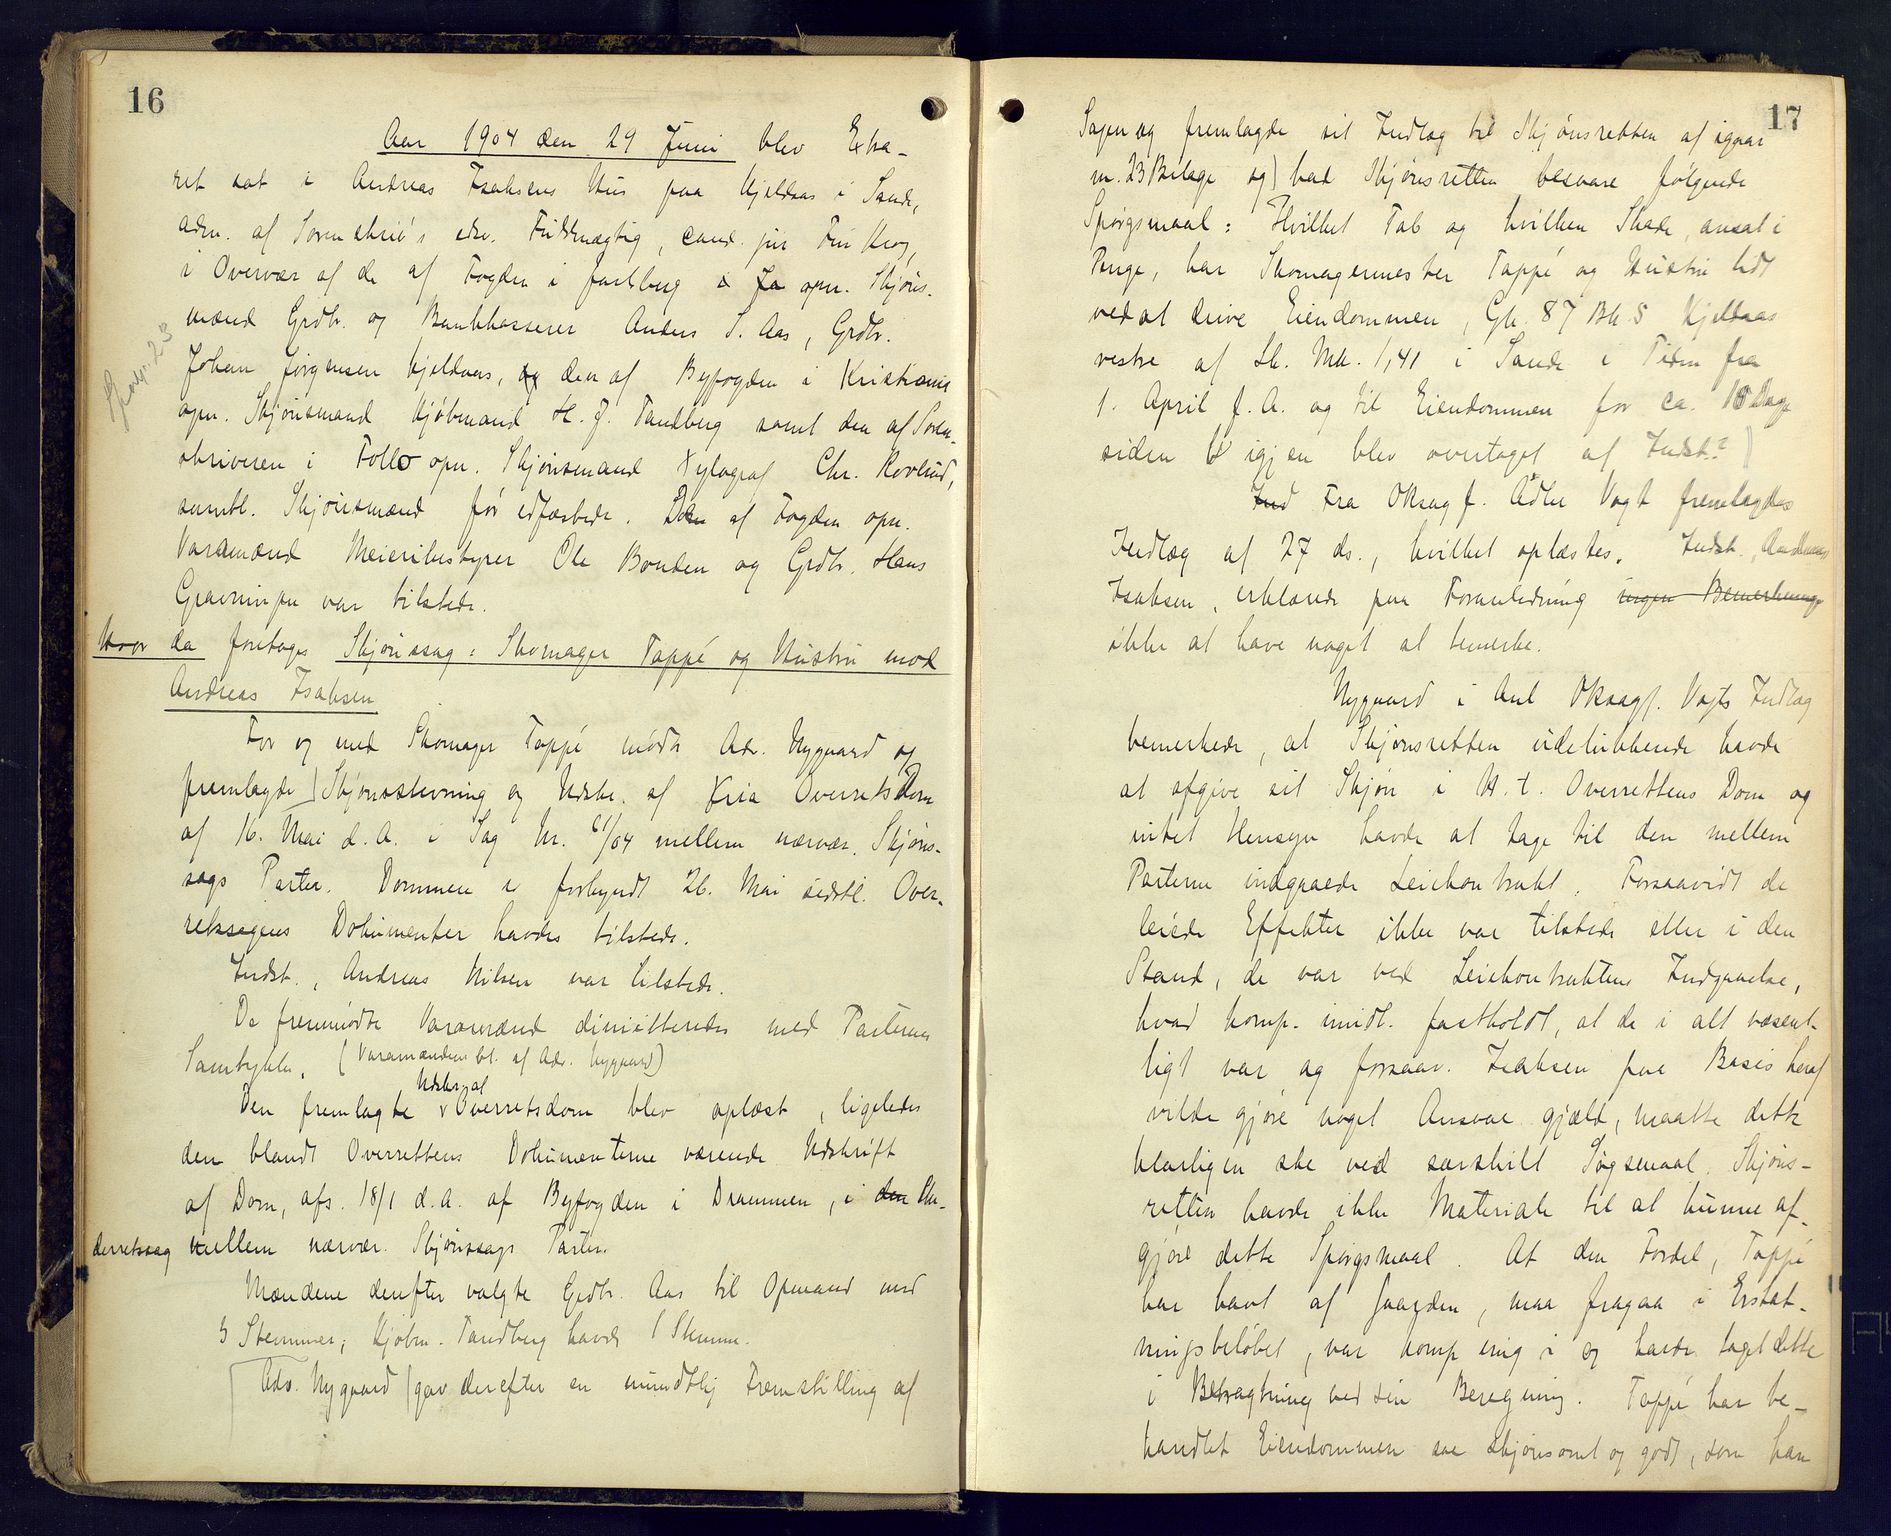 16
Aar 1904 den 29 Juni blev Extra-
ret sat i Andreas Isaksens Hus paa Kjeldaas i Sande,
adm. af Sorenskriv's edsv. Fuldmægtig, cand. jur Krog,
i Overvær af de af Fogden i Jarlsberg opn. Skjøns-
mænd Grdbr. og Bankkasserer Anders S. Aas, Grdbr.
Johan Jørgensen Kjeldaas, og den af Byfogden i Kristiania
opn. Skjønsmand Kjøbmand H. J. Tandberg samt den af Soren-
skriveren i Follo opn. Skjønsmand Xylograf Chr. Kovlund,
samtl. Skjønsmænd før edfæstede. De af Fogden opn.
Varamænd Meieribestyrer Ole Bonden og Grdbr. Hans
Gravningen var tilstede.
Hvor da foretoges Skjønssag: Skomager Tappé og Hustru mod
Andreas Isaksen
For og med Skomager Tappé mødte Adv. Nygaard og
fremlagde Skjønsstevning og Udskr. af Kria Overrets Dom
af 16. Mai d. A. i Sag Nr. 61/04 mellem nærvær. Skjøns-
sags Parter. Dommen er forkyndt 26. Mai sidstl. Over-
retssagens Dokumenter havdes tilstede.
Indst., Andreas Nilsen var tilstede.
De fremmødte Varamænd dimitteredes med Parternes
Samtykke. (Varamændene bt. af Adv. Nygaard)
Udskr. af
Den fremlagte Overretsdom blev oplæst, ligeledes
den blandt Overrettens Dokumenterne værende Udskrift
af Dom, afs. 18/1 d. A. af Byfogden i Drammen, i den Un-
derretssag mellem nærvær. Skjønssags Parter.
Mændene derefter valgte Grdbr. Aas til Opmand med
3 Stemmer; Kjøbm. Tandberg havde 1 Stemme.
Adv. Nygaard gav derefter en mundtlig Fremstilling af
17
Sagen og fremlagde sit Indlæg til Skjønsretten af igaar
m. 23 Bilage og) bad Skjønsretten besvare følgende
Spørgsmaal: Hvilket Tab og hvilken Skade, ansat i
Penge, har Skomagermester Tappé og Hustru lidt
ved at drive Eiendommen, Gn. 87 Bn. 5 Kjeldaas
vestre af Sk. Mk. 1,41 i Sande i Tiden fra
1. April f. A. og til Eiendommen for ca. 10 Dage
siden igjen blev overtaget af Indst.?
Ind Fra Oksagf. Adler Vogt fremlagdes
Indlæg af 27 ds., hvilket oplæstes. Indst., Andreas
Isaksen, erklærede paa Foranledning ingen Bemerkninger
ikke at have noget at bemerke.
Nygaard i Anl Oksagf. Vogts Indlæg
bemerkede, at Skjønsretten udelukkende havde
at afgive sit Skjøn i H. t. Overrettens Dom og
intet Hensyn havde at tage til den mellem
Parterne indgaaede Leiekontrakt. Forsaavidt de
leiede Effekter ikke var tilstede eller i den
Stand, de var ved Leiekontraktens Indgaaelse,
hvad komp. imidl. fastholdt, at de i alt væsent-
ligt var, og forsaav. Isaksen paa Basis heraf
vilde gjøre noget Ansvar gjæld, maatte dette
klarligen ske ved særskilt Søgsmaal. Skjøns-
retten havde ikke Materiale til at kunne af-
gjøre dette Spørgsmaal. At den Fordel, Tappé
har havt af Gaarden, maa fragaa i Erstat-
ningsbeløbet, var komp enig i og havde taget dette
i Betragtning ved sin Beregning. Tappé har be-
handlet Eiendommen saa skjønsomt og godt, som han